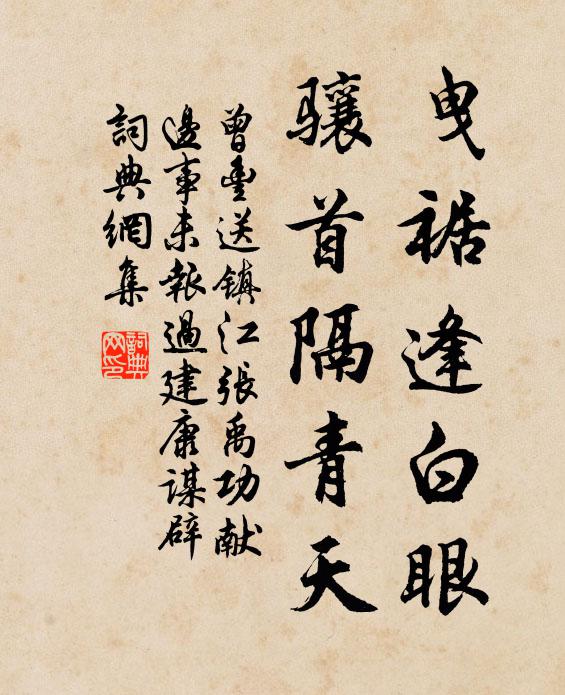 曳裾逢白眼
驤首隔青天
曾豐送鎮江張禹功献
邊事未報過建康谋辟
詞典網集
詞典
网印